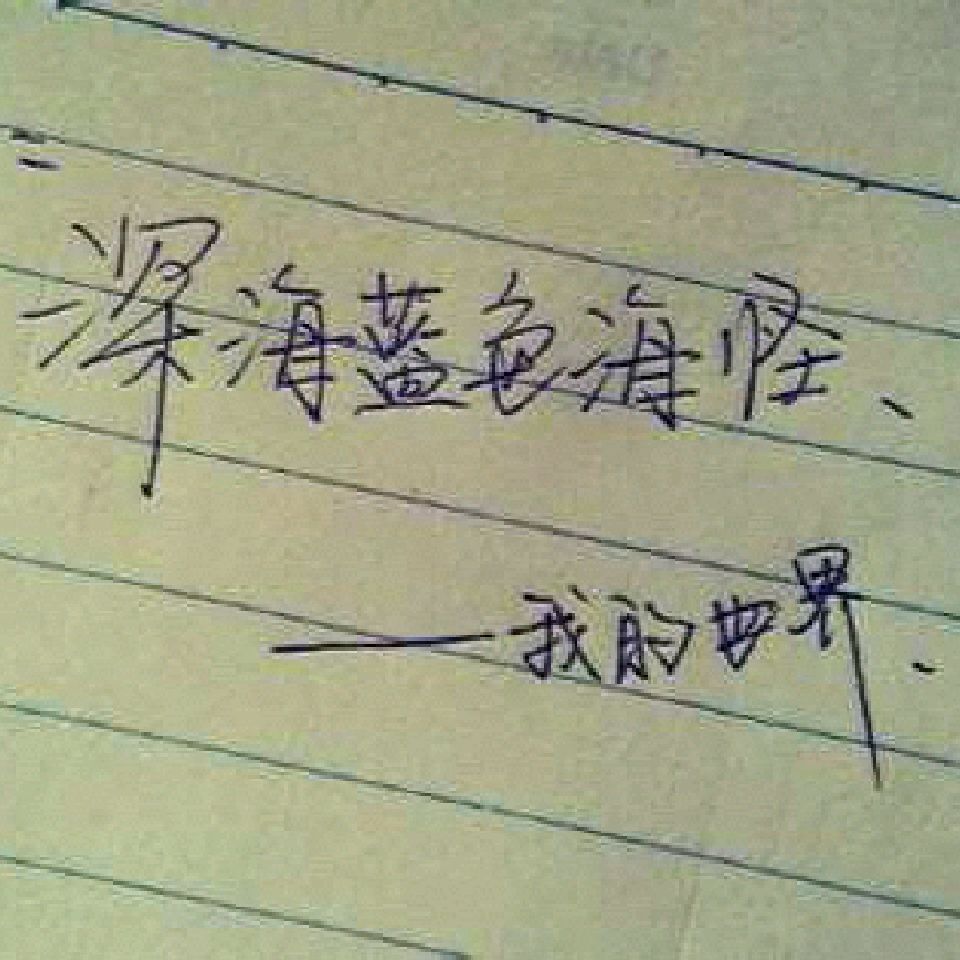 深海蓝色海怪、
——我的世界、